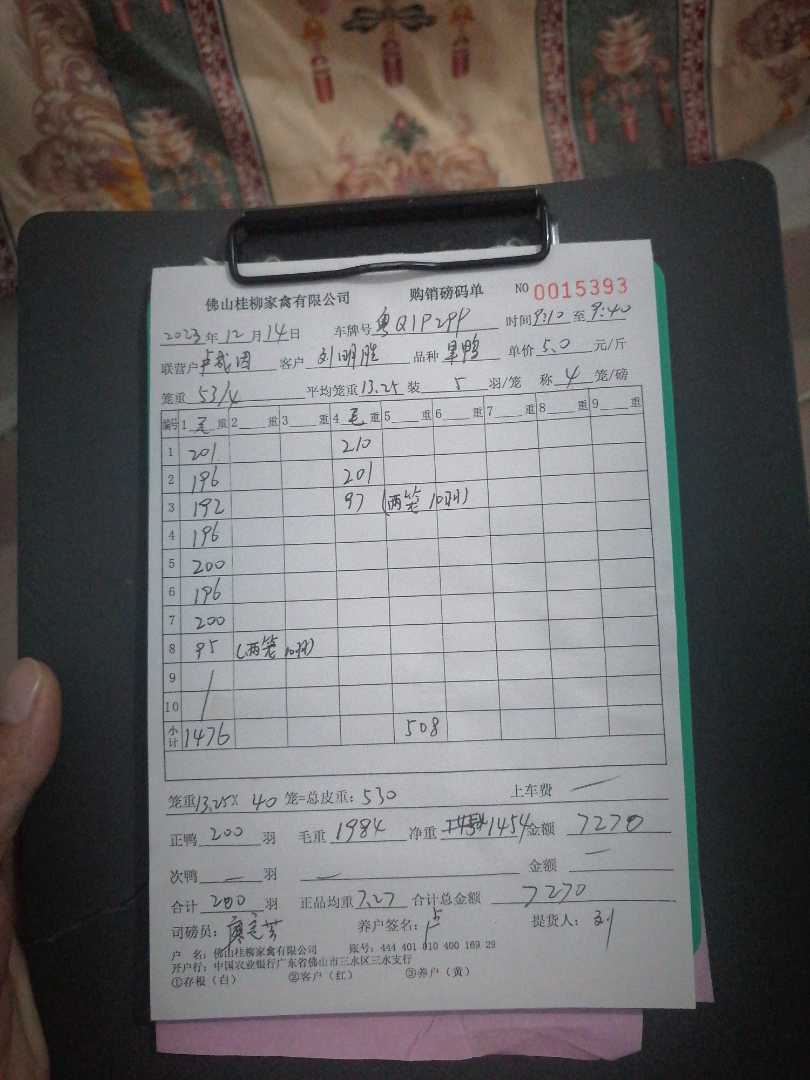 佛山桂柳家禽有限公司 购销磅码单 NO 0015393
2023年12月14日 车牌号 粤Q1P29P 时间9:10至9:40
联营户 客户 刘明胜 品种 单价5.0元/斤
笼重 53/4 平均笼重13.25 装5羽/笼 称4笼/磅
编号 1毛重 2重 3重 4毛重 5重 6重 7重 8重 9重
1 201 210
2 196 201
3 192 97 (两笼 10羽)
4 196
5 200
6 196
7 200
8 95 (两笼 10羽)
9
10
小计 1476 508
笼重13.25×40笼=总皮重:530 上车费 —
正鸭200羽 毛重1984 净重1454 金额7270
次鸭—羽 — 金额—
合计200羽 正品均重7.27 合计总金额7270
司磅员: 养户签名:卢 提货人:刘
户 名:佛山桂柳家禽有限公司 账号:444 401 010 400 169 29
开户行:中国农业银行广东省佛山市三水区三水支行
①存根(白) ②客户(红) ③养户(黄)